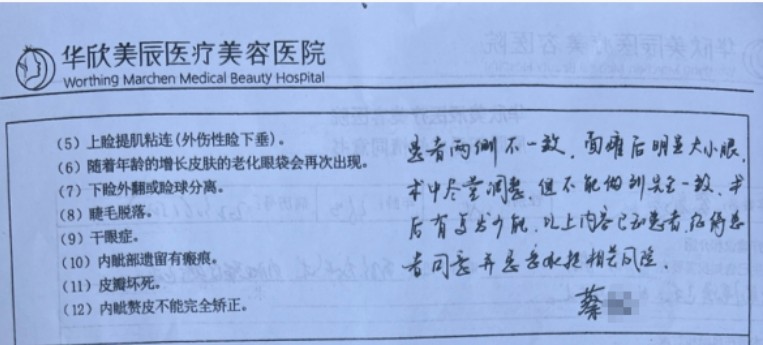 华欣美辰医疗美容医院
Worthing Marchen Medical Beauty Hospital
(5) 上睑提肌粘连(外伤性睑下垂)。
(6) 随着年龄的增长皮肤的老化眼袋会再次出现。
(7) 下睑外翻或睑球分离。
(8) 睫毛脱落。
(9) 干眼症。
(10) 内眦部遗留有瘢痕。
(11) 皮瓣坏死。
(12) 内眦赘皮不能完全矫正。
患者两侧不一致,面瘫后明显大小眼,
术中尽量调整,但不能做到完全一致,术
后有复发可能,以上内容已告患者,征得患
者同意并愿意承担相关风险。
蔡